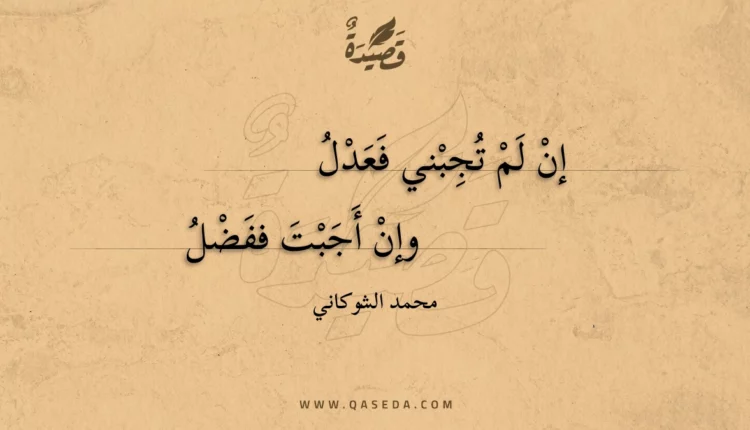 قَصِيْدَةٌ
إنْ لَمْ تُجِبْني فَعَدْلُ
وإنْ أَجَبْتَ ففَضْلُ
محمد الشوكاني
WWW.QASEDA.COM